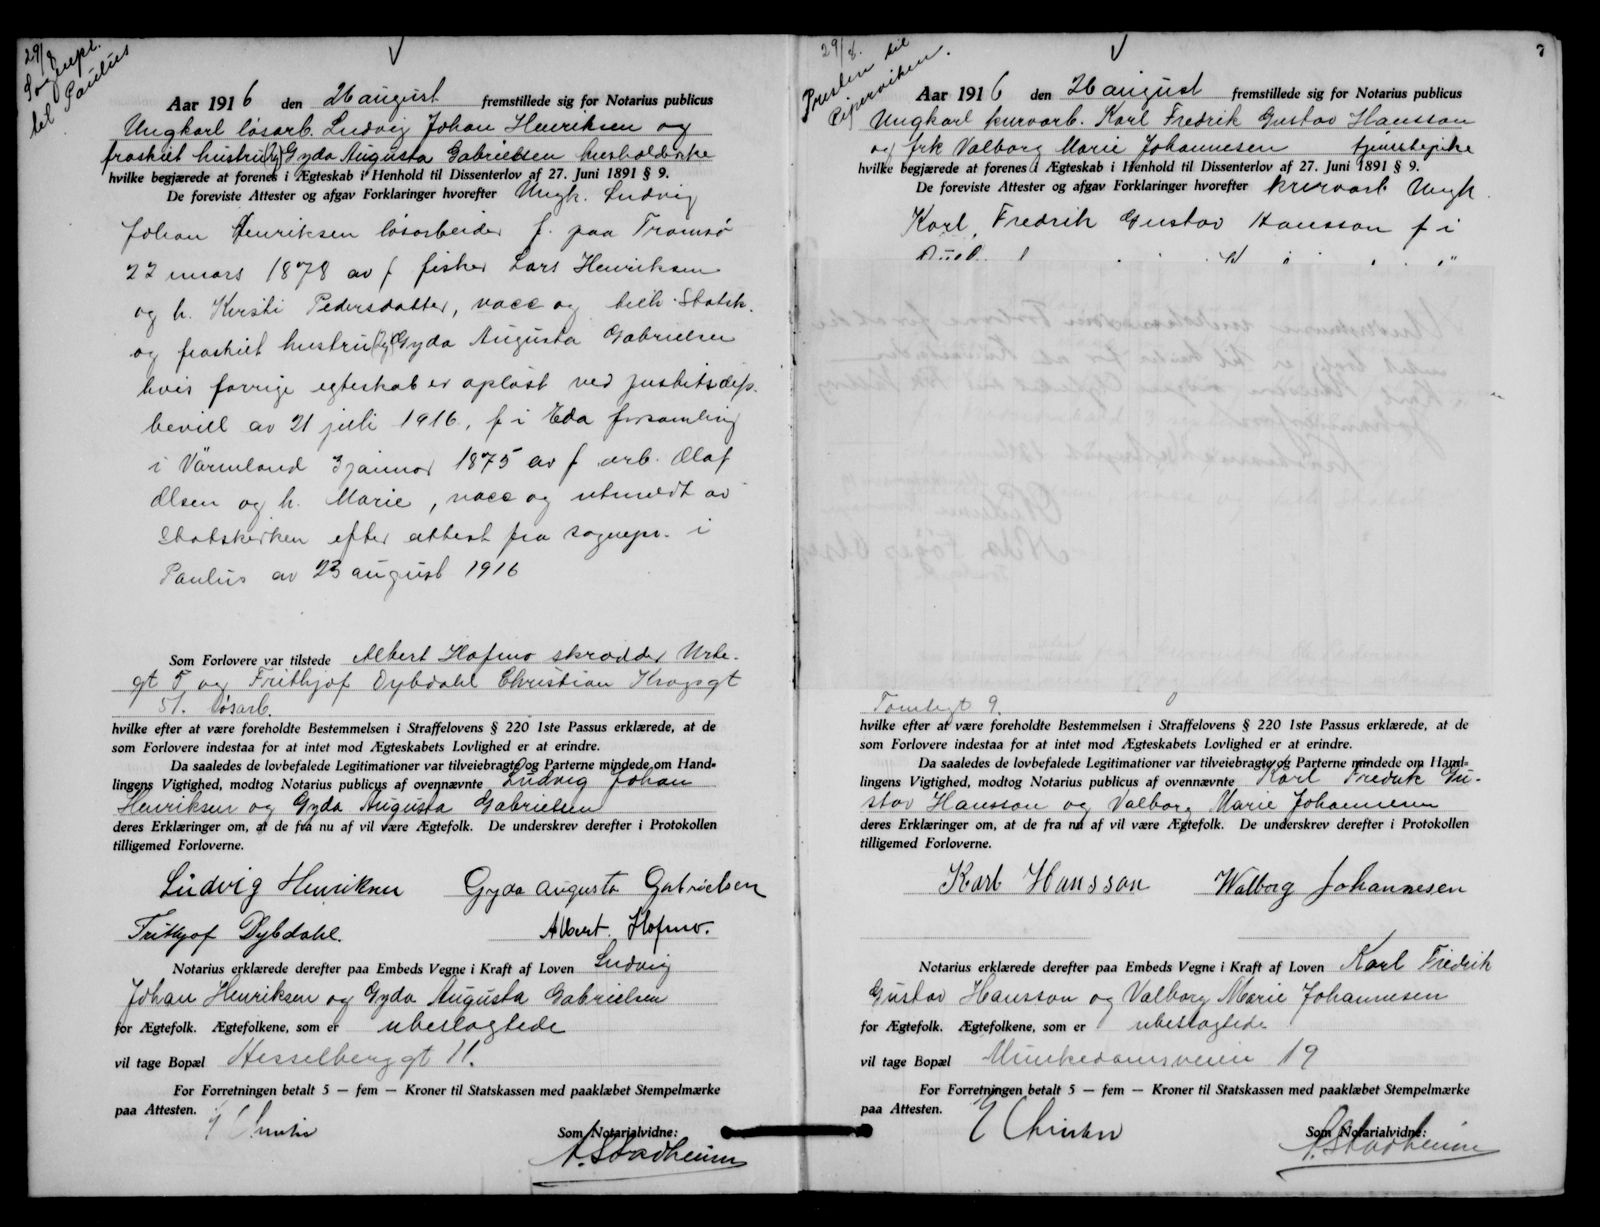 29/8
Sognepr.
til Paulus
Aar 1916 den 26 august fremstillede sig for Notarius publicus
Ungkarl løsarb. Ludvig Johan Henriksen og
fraskilt hustru Gyda Augusta Gabrielsen husholderske
hvilke begjærede at forenes i Ægteskab i Henhold til Dissenterlov af 27. Juni 1891 § 9.
De foreviste Attester og afgav Forklaringer hvorefter Ungk. Ludvig
Johan Henriksen løsarbeider f. paa Tromsø
22 mars 1878 av f fisker Lars Henriksen
og h. Kirsti Pedersdatter, vacc og tilh. Statsk.
og fraskilt hustru Gyda Augusta Gabrielsen
hvis forrige egteskab er opløst ved justitsdep.
bevill av 21 juli 1916, f i Eda forsamling
i Värmland 3 januar 1875 av f arb. Olaf
Olsen og h. Marie, vacc og utmeldt av
Statskirken efter attest fra sognepr. i
Paulus av 23 august 1916
Som Forlovere var tilstede Albert Hofmo skrædder Urte-
gt 5 og Frithjof Dybdahl Christian Krogsgt
51. løsarb.
hvilke efter at være foreholdte Bestemmelsen i Straffelovens § 220 1ste Passus erklærede, at de
som Forlovere indestaa for at intet mod Ægteskabets Lovlighed er at erindre.
Da saaledes de lovbefalede Legitimationer var tilveiebragte og Parterne mindede om Hand-
lingens Vigtighed, modtog Notarius publicus af ovennævnte Ludvig Johan
Henriksen og Gyda Augusta Gabrielsen
deres Erklæringer om, at de fra nu af vil være Ægtefolk. De underskrev derefter i Protokollen
tilligemed Forloverne.
Ludvig Henriksen Gyda Augusta Gabrielsen
Frithjof Dybdahl. Albert Hofmo.
Notarius erklærede derefter paa Embeds Vegne i Kraft af Loven Ludvig
Johan Henriksen og Gyda Augusta Gabrielsen
for Ægtefolk. Ægtefolkene, som er ubeslægtede
vil tage Bopæl Hesselberggt 11.
For Forretningen betalt 5 — fem — Kroner til Statskassen med paaklæbet Stempelmærke
paa Attesten.
Som Notarialvidne:
A. Stadheim
29/8.
Presten til
Pipervikken.
3
Aar 1916 den 26 august fremstillede sig for Notarius publicus
Ungkarl kurvarb. Karl Fredrik Gustav Hansson
og frk Valborg Marie Johannesen tjenestepike
hvilke begjærede at forenes i Ægteskab i Henhold til Dissenterlov af 27. Juni 1891 § 9.
De foreviste Attester og afgav Forklaringer hvorefter kurvarb Ungk.
Karl Fredrik Gustav Hansson f i
Tomtegt 9.
hvilke efter at være foreholdte Bestemmelsen i Straffelovens § 220 1ste Passus erklærede, at de
som Forlovere indestaa for at intet mod Ægteskabets Lovlighed er at erindre.
Da saaledes de lovbefalede Legitimationer var tilveiebragte og Parterne mindede om Hand-
lingens Vigtighed, modtog Notarius publicus af ovennævnte Karl Fredrik Gu-
stav Hansson og Valborg Marie Johannesen
deres Erklæringer om, at de fra nu af vil være Ægtefolk. De underskrev derefter i Protokollen
tilligemed Forloverne.
Karl Hansson Walborg Johannesen
Notarius erklærede derefter paa Embeds Vegne i Kraft af Loven Karl Fredrik
Gustav Hansson og Valborg Marie Johannesen
for Ægtefolk. Ægtefolkene, som er ubeslægtede
vil tage Bopæl Munkedamsveien 19
For Forretningen betalt 5 — fem — Kroner til Statskassen med paaklæbet Stempelmærke
paa Attesten.
Som Notarialvidne:
A. Stadheim